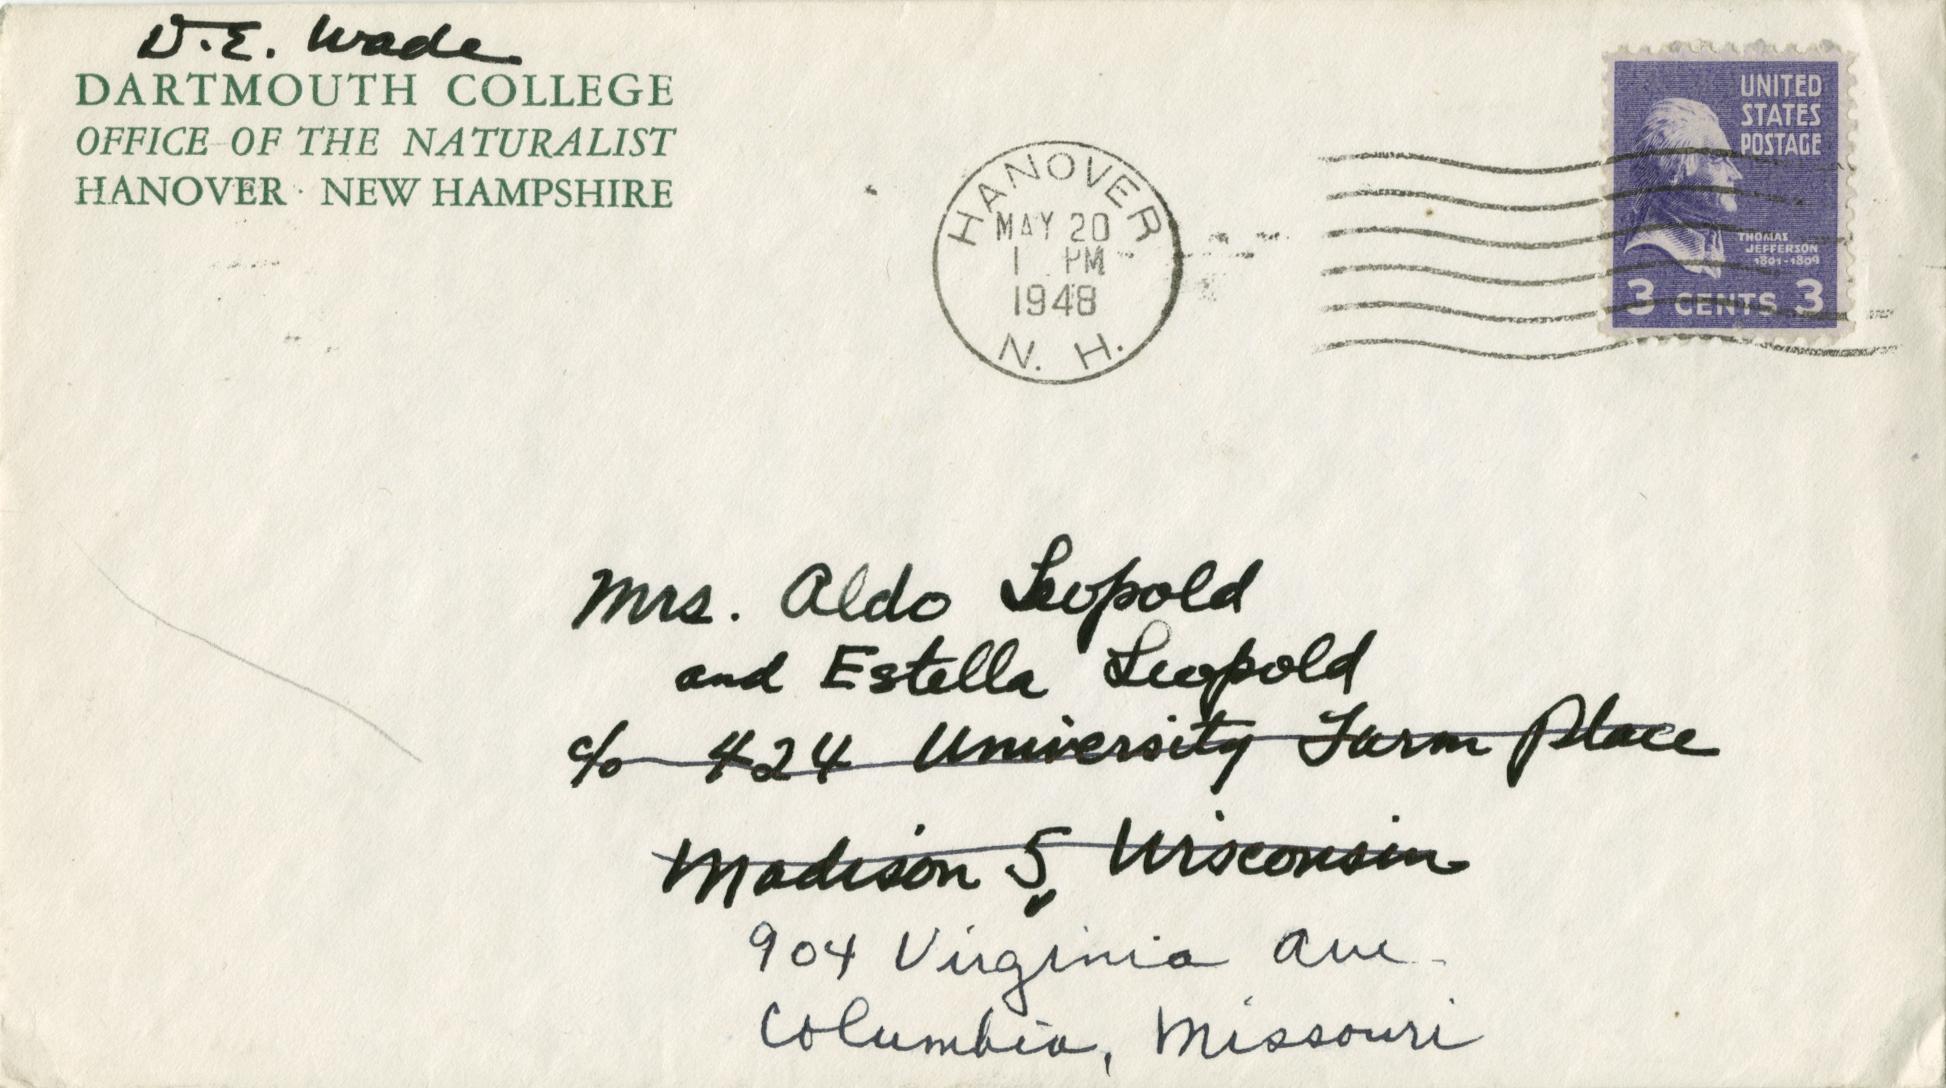 D.E. Wade
DARTMOUTH COLLEGE
OFFICE OF THE NATURALIST
HANOVER · NEW HAMPSHIRE
HANOVER
MAY 20
1 PM
1948
N. H.
UNITED
STATES
POSTAGE
THOMAS
JEFFERSON
1801-1809
3 CENTS 3
Mrs. Aldo Leopold
and Estella Leopold
c/o 424 University Farm Place
Madison 5, Wisconsin
904 Virginia Ave.
Columbia, Missouri